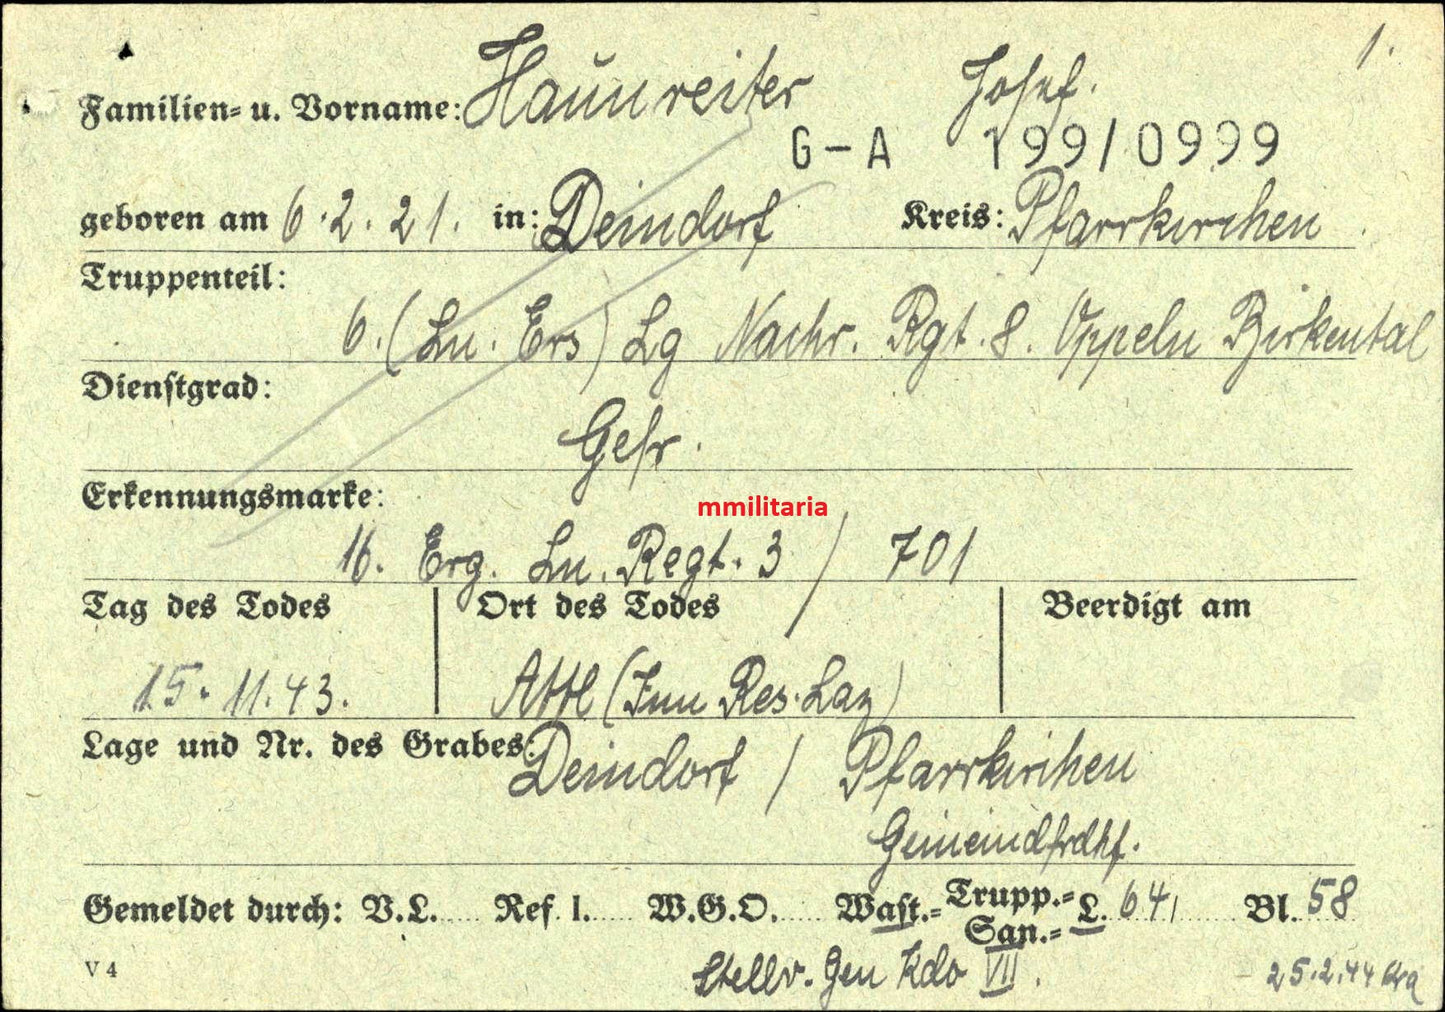 1.
Familien- u. Vorname: Haunreiter Josef.
G-A 199/0999
geboren am 6.2.21. in: Deindorf Kreis: Pfarrkirchen
Truppenteil:
6. (Ln. Ers) Lg Nachr. Rgt. 8. Oppeln Birkental
Dienstgrad:
Gefr.
Erkennungsmarke:
mmilitaria
16. Erg. Ln. Regt. 3 / 701
Tag des Todes Ort des Todes Beerdigt am
15.11.43. Attl (Inn Res. Laz)
Lage und Nr. des Grabes: Deindorf / Pfarrkirchen
Gemeindfrdhf.
Gemeldet durch: V.L. Ref. I. W.G.O. Wast.- Trupp.- San.- L. 641 Bl. 58
V 4 Stellv. Gen Kdo VII. 25.2.44